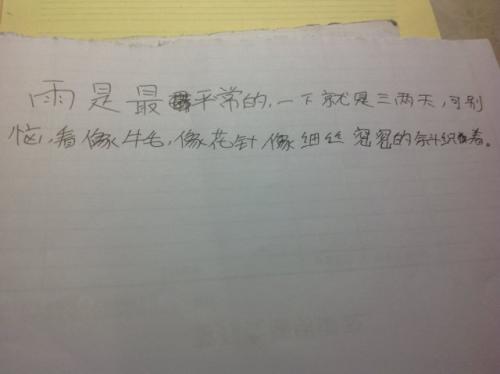 雨是最平常的，一下就是三两天，可别
恼，看像牛毛，像花针，像细丝密密的斜织着。